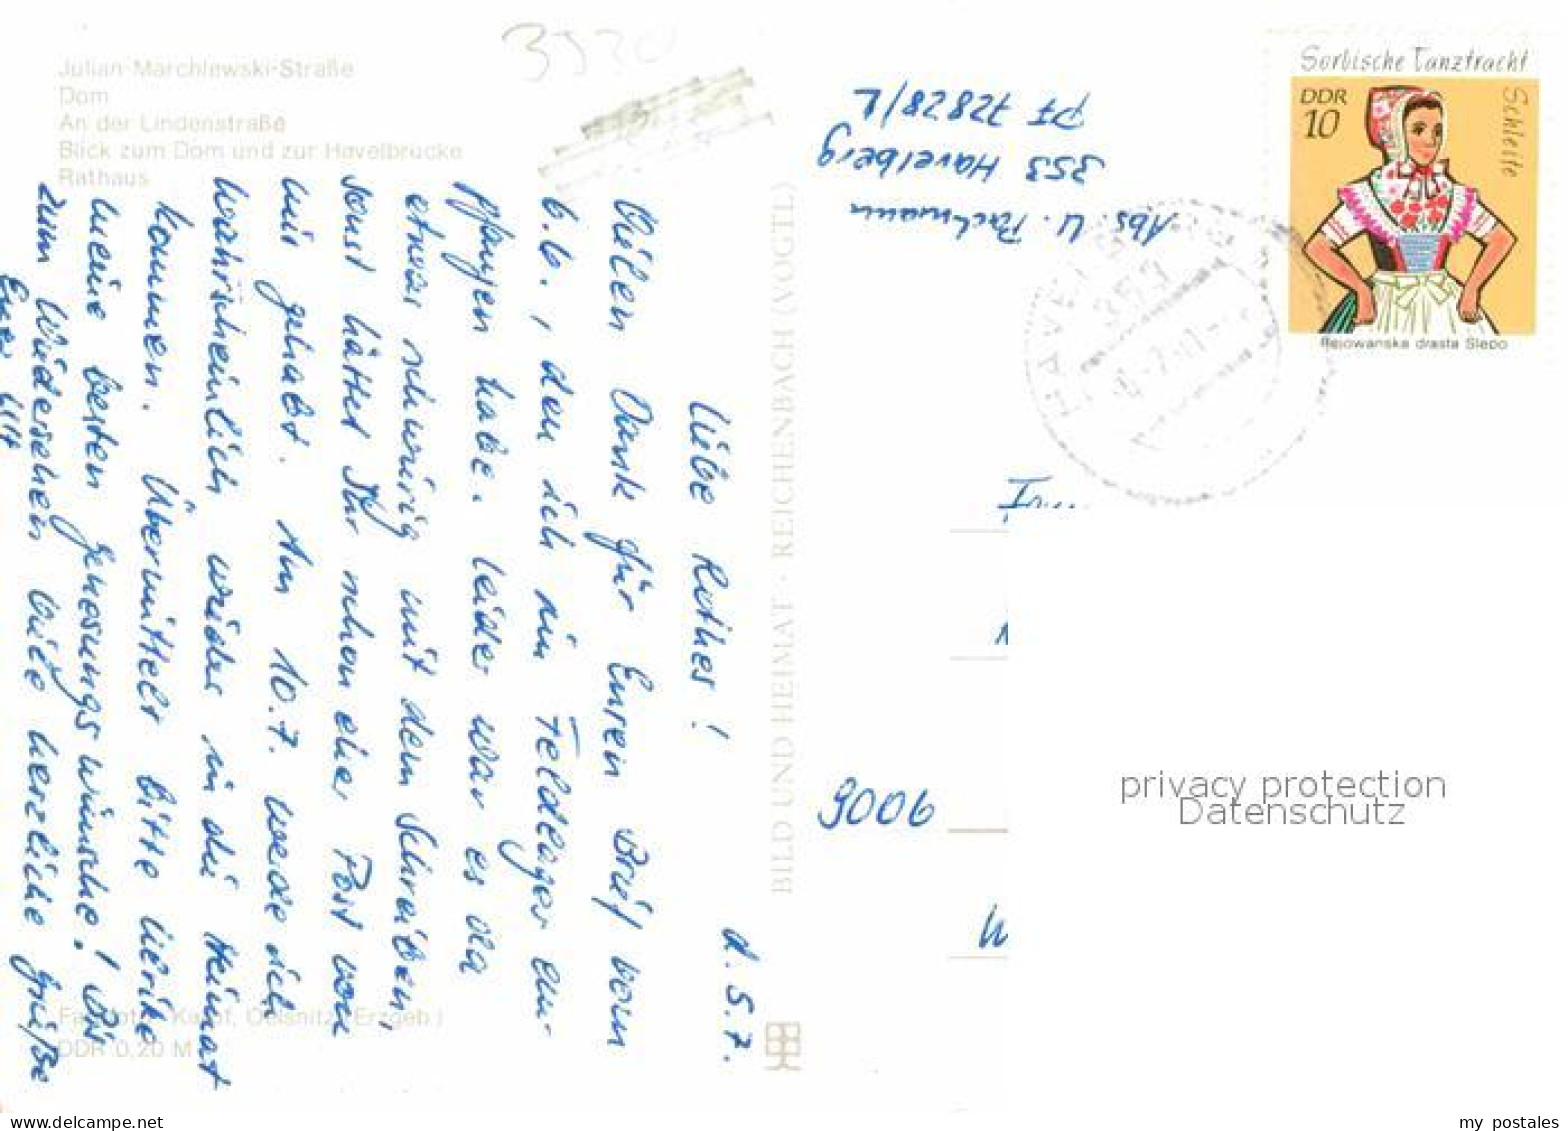 Julian-Marchlewski-Straße
Dom
An der Lindenstraße
Blick zum Dom und zur Havelbrücke
Rathaus
d. 5.7.
Liebe Rothes!
Vielen Dank für Euren Brief vom
6.6., den ich im Feldlager em-
pfangen habe. Leider war es da
etwas schwierig mit dem Schreiben,
sonst hättet Ihr schon eher Post von
mir gehabt. Am 10.7. werde ich
wahrscheinlich wieder in die Heimat
kommen. Übermittelt bitte
meine besten Genesungswünsche! Bis
zum Wiedersehen viele herzliche Grüße
Euer
BILD UND HEIMAT · REICHENBACH (VOGTL)
Oelsnitz (Erzgeb.)
DDR 0,20 M
Abs. U.
353 Havelberg
PF 72828/L
Sorbische Tanztracht
Schleife
DDR
10
Rejowanska drasta Slepo
9006
privacy protection
Datenschutz
my postales